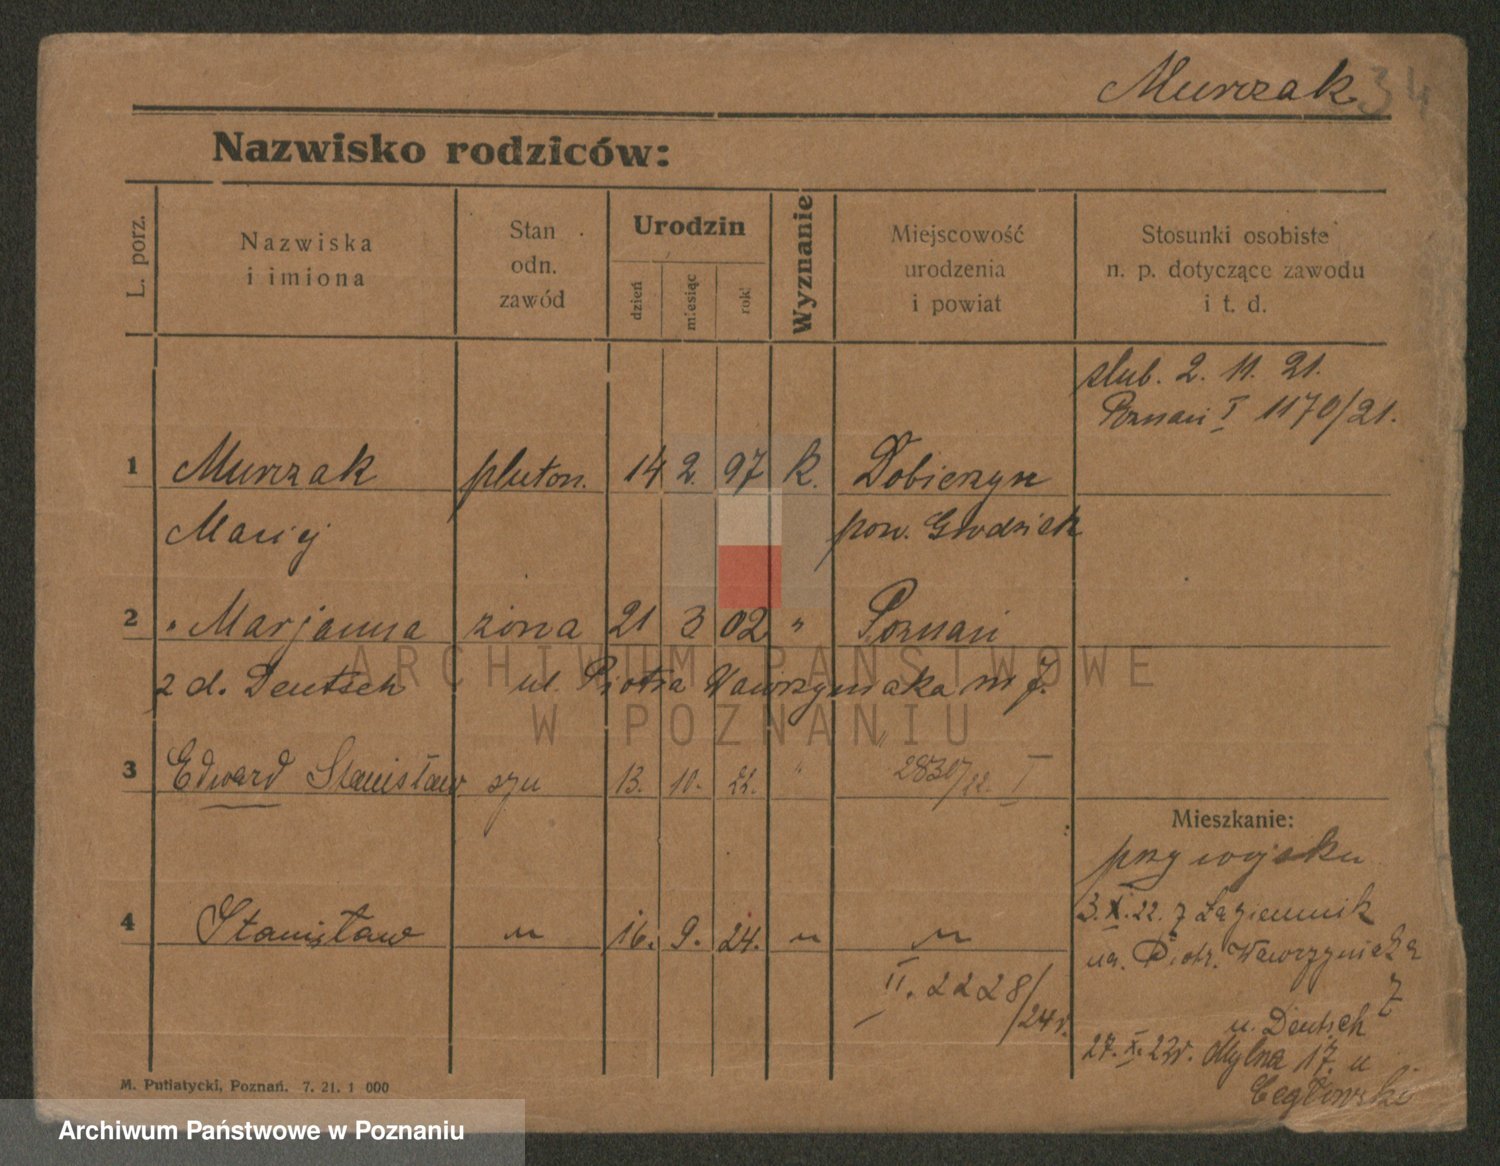 Murczak 34
Nazwisko rodziców:
L. porz.
Nazwiska
i imiona
Stan
odn.
zawód
Urodzin
dzień
miesiąc
rok
Wyznanie
Miejscowość
urodzenia
i powiat
Stosunki osobiste
n. p. dotyczące zawodu
i t. d.
slub. 2. 11. 21.
Poznań I 1170/21.
1 Murczak pluton. 14 2. 97 k. Dobieżyn
Maciej pow. Grodzisk
2 " Marjanna żona 21 3 02 " Poznań
z d. Deutsch ul. Piotra Wawrzyniaka nr 7.
3 Edward Stanisław syn 13. 10. 22. " 2830/22. I
Mieszkanie:
przy wojsku
4 Stanisław " 16. 9. 24. " "
3. X. 22. z Łagiewnik
na. Piotr. Wawrzyniaka
7
II. 2228/24r.
u. Deutsch
27. X. 22r. Młylna 17. u
Cegłowski
M. Putiatycki, Poznań. 7. 21. 1 000
ARCHIWUM PAŃSTWOWE
W POZNANIU
Archiwum Państwowe w Poznaniu